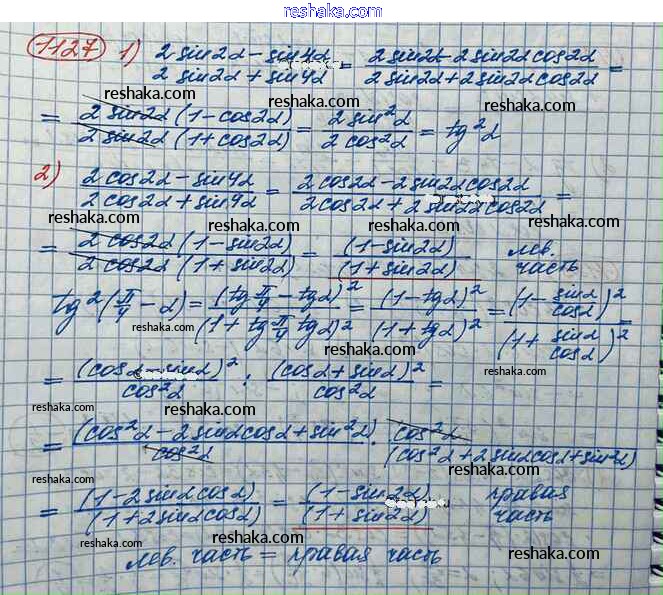 www.reshaka.com
1127 1) (2 sin2α − sin4α)/(2 sin2α + sin4α) = (2 sin2α − 2 sin2α cos2α)/(2 sin2α + 2 sin2α cos2α) =
reshaka.com reshaka.com
= (2 sin2α (1 − cos2α))/(2 sin2α (1 + cos2α)) = (2 sin²α)/(2 cos²α) = tg²α
reshaka.com reshaka.com
2) (2 cos2α − sin4α)/(2 cos2α + sin4α) = (2 cos2α − 2 sin2α cos2α)/(2 cos2α + 2 sin2α cos2α) =
reshaka.com reshaka.com
= (2 cos2α (1 − sin2α))/(2 cos2α (1 + sin2α)) = (1 − sin2α)/(1 + sin2α) лев. часть
reshaka.com reshaka.com
tg²(π/4 − α) = (tg π/4 − tgα)²/(1 + tg π/4 tgα)² = (1 − tgα)²/(1 + tgα)² = (1 − sinα/cosα)²/(1 + sinα/cosα)² =
reshaka.com reshaka.com
= (cosα − sinα)²/cos²α : (cosα + sinα)²/cos²α =
reshaka.com reshaka.com reshaka.com
= (cos²α − 2 sinα cosα + sin²α)/cos²α · cos²α/(cos²α + 2 sinα cosα + sin²α)
reshaka.com reshaka.com reshaka.com
= (1 − 2 sinα cosα)/(1 + 2 sinα cosα) = (1 − sin2α)/(1 + sin2α) правая часть
reshaka.com reshaka.com
лев. часть = правая часть
reshaka.com reshaka.com reshaka.com